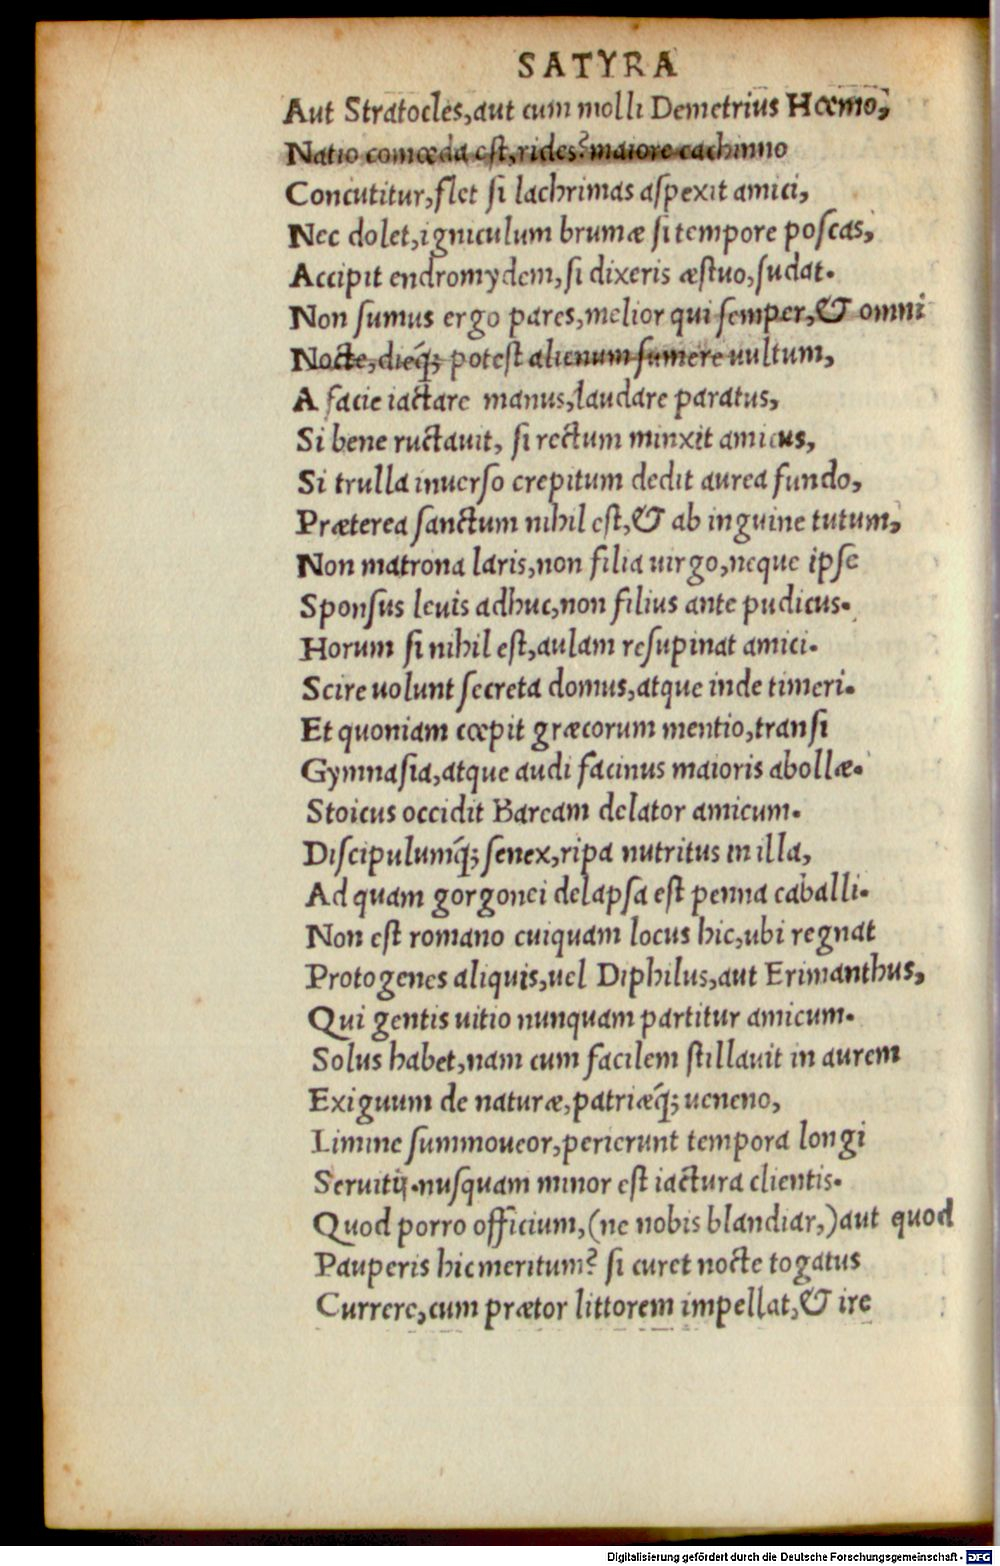 SATYRA
Aut Stratocles,aut cum molli Demetrius Hœmo,
Natio comœda est,rides? maiore cachinno
Concutitur,flet si lachrimas aspexit amici,
Nec dolet,igniculum brumæ si tempore poscas,
Accipit endromydem,si dixeris æstuo,sudat.
Non sumus ergo pares,melior qui semper,& omni
Nocte,dieq́; potest alienum sumere uultum,
A facie iactare manus,laudare paratus,
Si bene ructauit, si rectum minxit amicus,
Si trulla inuerso crepitum dedit aurea fundo,
Præterea sanctum nihil est,& ab inguine tutum,
Non matrona laris,non filia uirgo,neque ipse
Sponsus leuis adhuc,non filius ante pudicus.
Horum si nihil est,aulam resupinat amici.
Scire uolunt secreta domus,atque inde timeri.
Et quoniam cœpit græcorum mentio,transi
Gymnasia,atque audi facinus maioris abollæ.
Stoicus occidit Baream delator amicum.
Discipulumq́; senex,ripa nutritus in illa,
Ad quam gorgonei delapsa est penna caballi.
Non est romano cuiquam locus hic,ubi regnat
Protogenes aliquis,uel Diphilus,aut Erimanthus,
Qui gentis uitio nunquam partitur amicum.
Solus habet,nam cum facilem stillauit in aurem
Exiguum de naturæ,patriæq́; ueneno,
Limine summoueor,perierunt tempora longi
Seruitij.nusquam minor est iactura clientis.
Quod porro officium,(ne nobis blandiar,)aut quod
Pauperis hic meritum? si curet nocte togatus
Currere,cum prætor littorem impellat,& ire
Digitalisierung gefördert durch die Deutsche Forschungsgemeinschaft - DFG